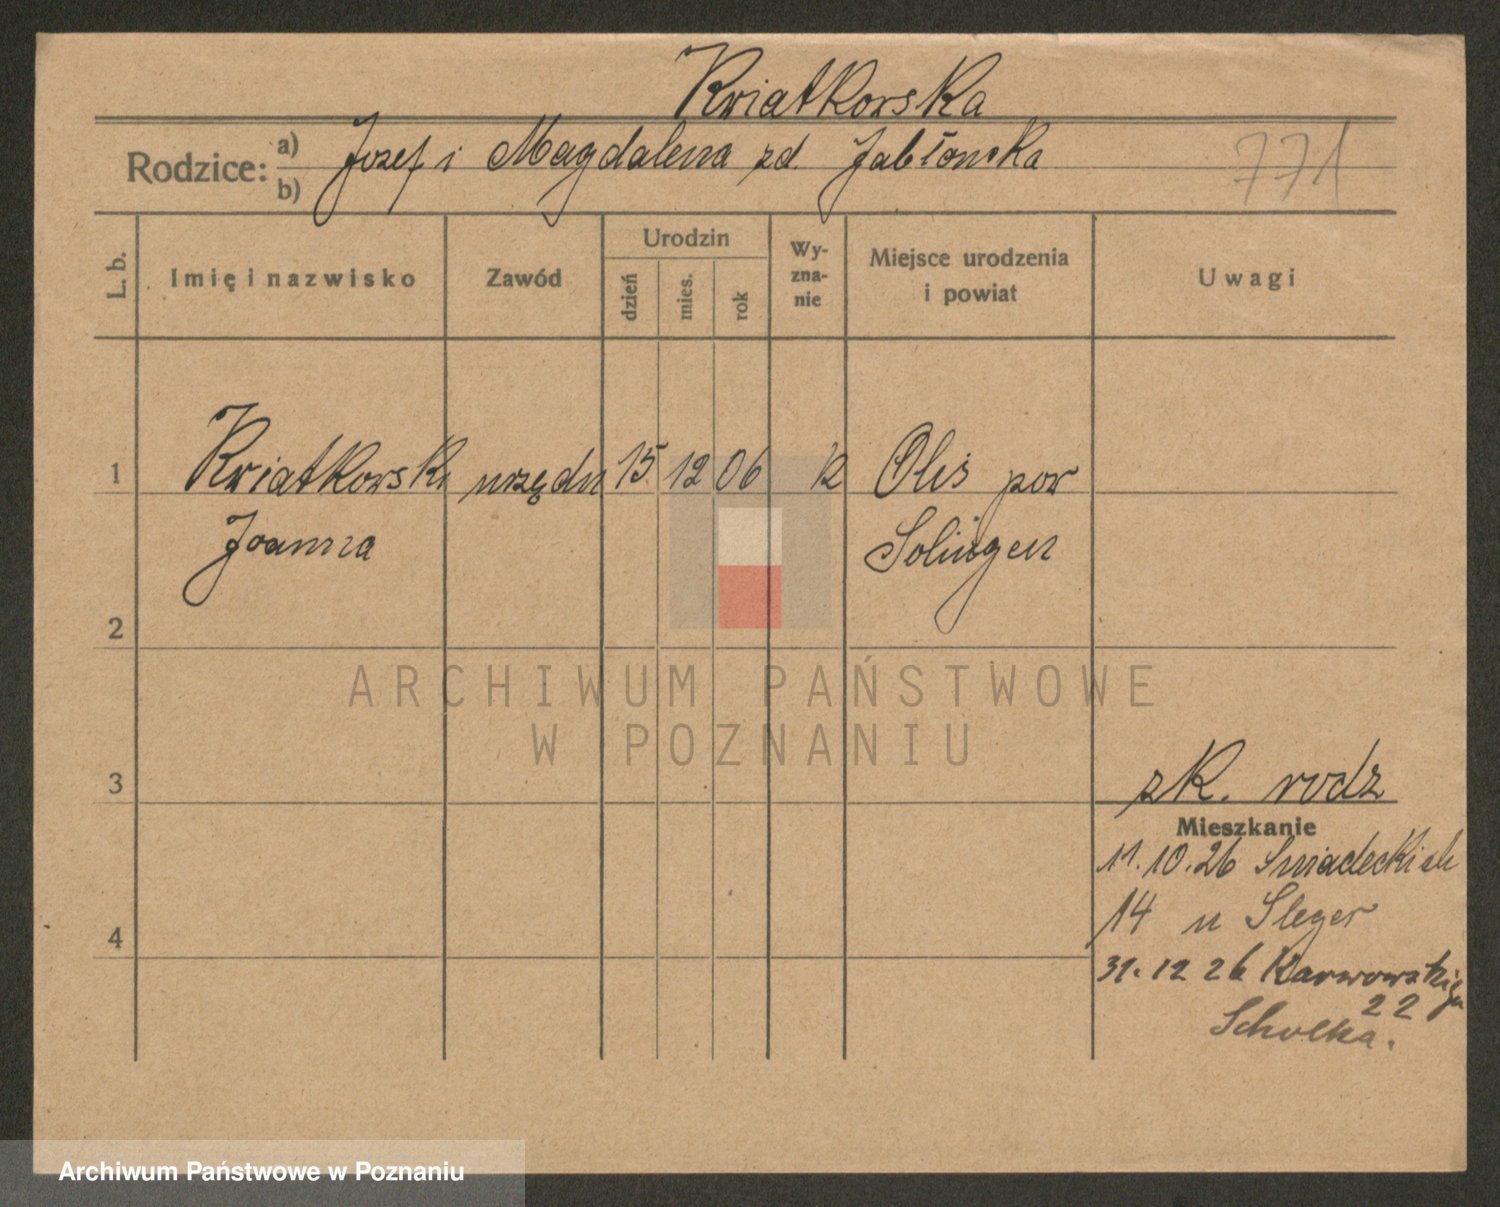 Kwiatkowska
Rodzice: a) b) Jozef i Magdalena zd. Jabłonska
771
L. b.
Imię i nazwisko
Zawód
Urodzin
dzień
mies.
rok
Wy-
zna-
nie
Miejsce urodzenia
i powiat
Uwagi
1 Kwiatkowska urzędn 15 12 06 k Olis pow
Joanna Solingen
2
ARCHIWUM PAŃSTWOWE
W POZNANIU
3
zk. rodz
Mieszkanie
11.10.26 Sniadeckich
14 u Sleger
4
31.12 26 Karwowskiego
22
Scholka.
Archiwum Państwowe w Poznaniu